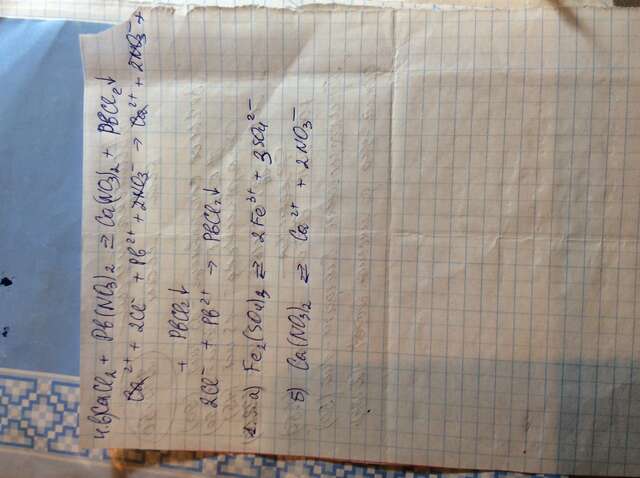 4.в) CaCl₂ + Pb(NO₃)₂ ⇄ Ca(NO₃)₂ + PbCl₂↓
Ca²⁺ + 2Cl⁻ + Pb²⁺ + 2NO₃⁻ → Ca²⁺ + 2NO₃⁻ +
+ PbCl₂↓
2Cl⁻ + Pb²⁺ → PbCl₂↓
а) Fe₂(SO₄)₃ ⇄ 2Fe³⁺ + 3SO₄²⁻
б) Ca(NO₃)₂ ⇄ Ca²⁺ + 2NO₃⁻